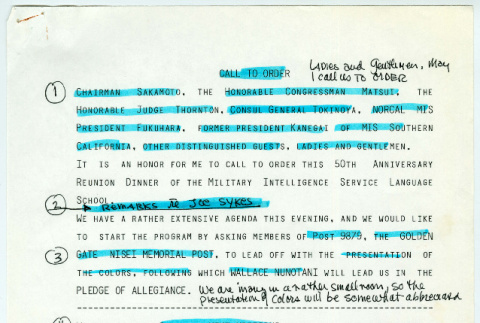 Ladies and Gentlemen, May
I call us to ORDER
CALL TO ORDER
① CHAIRMAN SAKAMOTO, THE HONORABLE CONGRESSMAN MATSUI, THE
HONORABLE JUDGE THORNTON, CONSUL GENERAL TOKINOYA, NORCAL MIS
PRESIDENT FUKUHARA, FORMER PRESIDENT KANEGAI OF MIS SOUTHERN
CALIFORNIA, OTHER DISTINGUISHED GUESTS, LADIES AND GENTLEMEN.
IT IS AN HONOR FOR ME TO CALL TO ORDER THIS 50TH ANNIVERSARY
REUNION DINNER OF THE MILITARY INTELLIGENCE SERVICE LANGUAGE
SCHOOL.
② REMARKS TO JOE SYKES.
WE HAVE A RATHER EXTENSIVE AGENDA THIS EVENING, AND WE WOULD LIKE
TO START THE PROGRAM BY ASKING MEMBERS OF POST 9879, THE GOLDEN
③ GATE NISEI MEMORIAL POST, TO LEAD OFF WITH THE PRESENTATION OF
THE COLORS, FOLLOWING WHICH WALLACE NUNOTANI WILL LEAD US IN THE
PLEDGE OF ALLEGIANCE. We are in a rather small room, so the
presentation of colors will be somewhat abbreviated